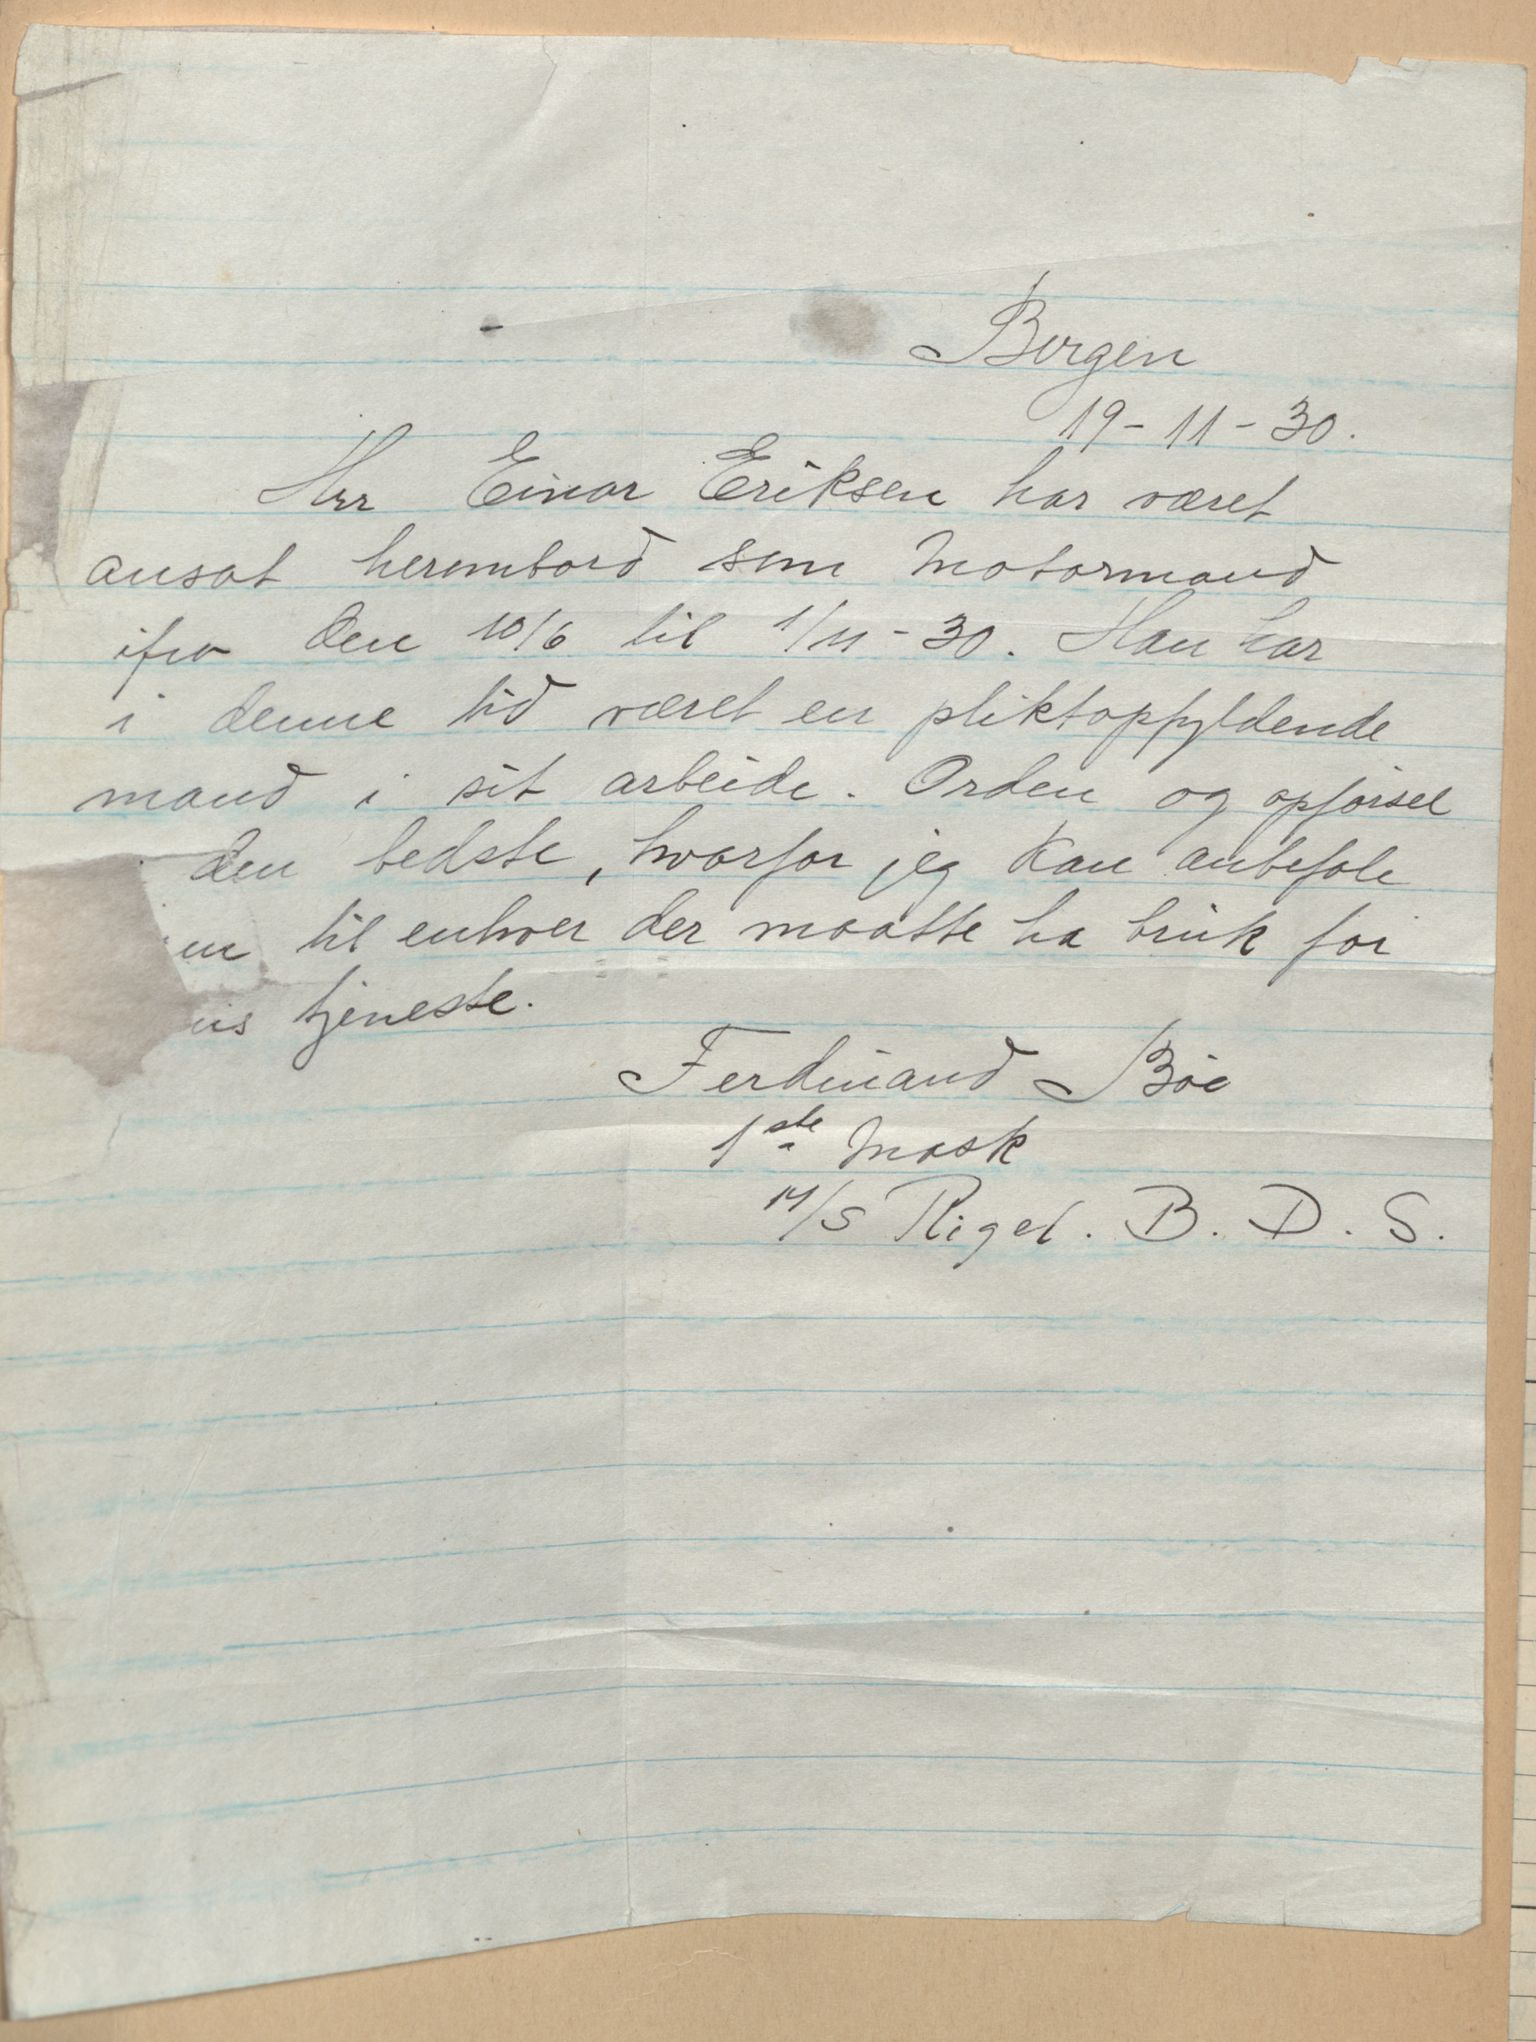 Bergen
19-11-30.
Hrr Einar Eriksen har været
ansat herombord som Motormand
ifra den 10/6 til 1/11-30. Han har
i denne tid været en pliktopfyldende
mand i sit arbeide. Orden og opførsel
den bedste, hvorfor jeg kan anbefale
til enhver der maatte ha bruk for
tjeneste.
Ferdinand Bøe
1ste Mask
M/S Rigel. B. D. S.